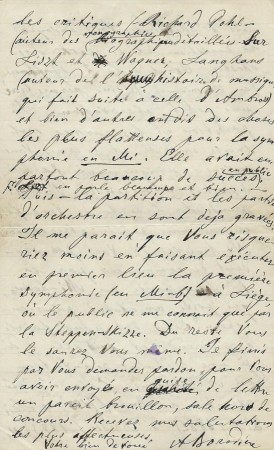 Les critiques (Richard Pohl -
(auteur des monographies détaillées sur
Liszt et Wagner, Langhans
(auteur de l'histoire de musique
qui fait suite à celle d'Ambros
et bien d'autres ont dit des choses
les plus flatteuses pour la sym
phonie en Mi. Elle avait en
partout beaucoup de succès en public
en parle beaucoup et bien. -
Puis - la partition et les parties
d'orchestre en sont déjà gravées
Il me parait que vous risque
riez moins en faisant exécuter
en premier lieu la première
symphonie (en Mi-b) - à Liège
où le public ne me connait que par
la Steppenskizze. Du reste Vous
le saurez Vous même. Je finis
par Vous demander pardon pour Vous
avoir envoyé en guise de lettre
un pareil brouillon, sale hors de
concours. Recevez mes salutations
les plus affectueuses.
Votre bien dévoué A Borodine